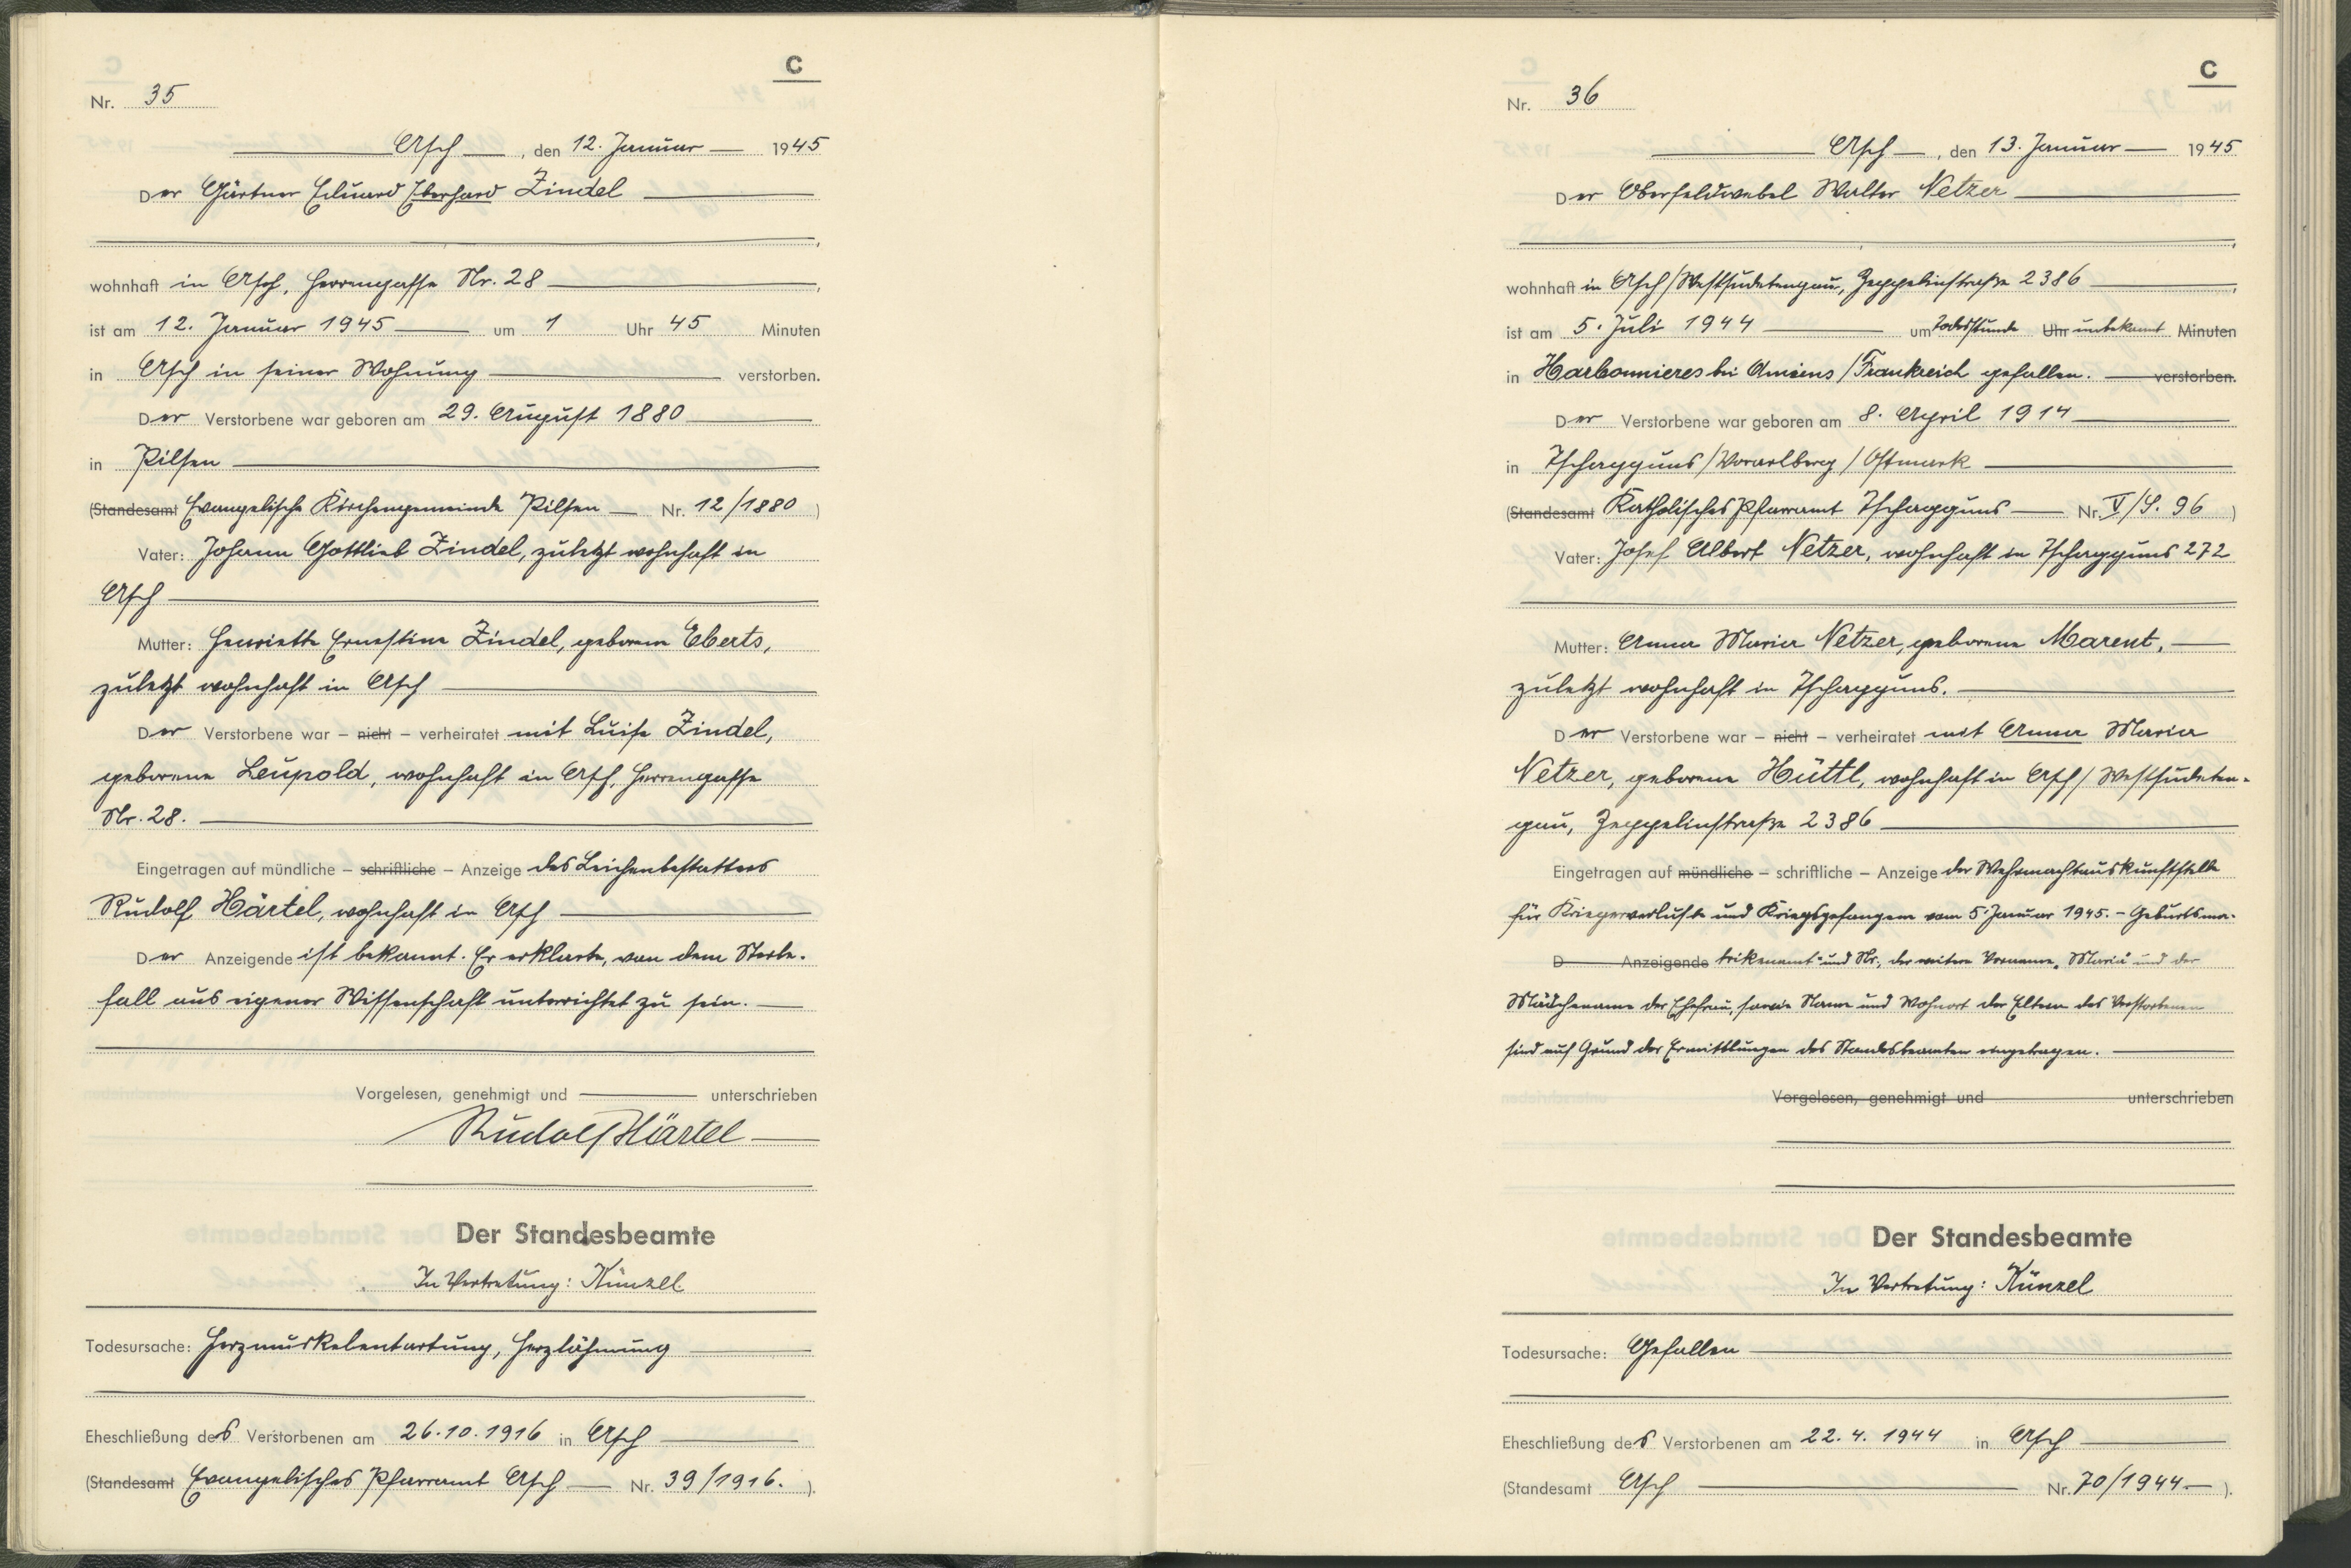 C
Nr. 35
Asch, den 12. Januar 1945
Der Gärtner Eduard Eberhard Zindel
wohnhaft in Asch, Herrengasse Nr. 28,
ist am 12. Januar 1945 um 1 Uhr 45 Minuten
in Asch in seiner Wohnung verstorben.
Der Verstorbene war geboren am 29. August 1880
in Pilsen
(Standesamt Evangelische Kirchengemeinde Pilsen Nr. 12/1880)
Vater: Johann Gottlieb Zindel, zuletzt wohnhaft in
Asch
Mutter: Henriette Ernestine Zindel, geborene Eberts,
zuletzt wohnhaft in Asch
Der Verstorbene war – nicht – verheiratet mit Luise Zindel,
geborene Leupold, wohnhaft in Asch, Herrengasse
Nr. 28.
Eingetragen auf mündliche – schriftliche – Anzeige des Leichenbestatters
Rudolf Härtel, wohnhaft in Asch
Der Anzeigende ist bekannt. Er erklärte, von dem Sterbe-
fall aus eigener Wissenschaft unterrichtet zu sein.
Vorgelesen, genehmigt und unterschrieben
Rudolf Härtel
Der Standesbeamte
In Vertretung: Künzel
Todesursache: Herzmuskelentartung, Herzlähmung
Eheschließung des Verstorbenen am 26.10.1916 in Asch
(Standesamt Evangelisches Pfarramt Asch Nr. 39/1916.).
C
Nr. 36
Asch, den 13. Januar 1945
Der Oberfeldwebel Walter Netzer
wohnhaft in Asch/Westsudetengau, Zeppelinstraße 2386,
ist am 5. Juli 1944 um Todesstunde Uhr unbekannt Minuten
in Harbonnieres bei Amiens/Frankreich gefallen. verstorben.
Der Verstorbene war geboren am 8. April 1914
in Tschagguns/Vorarlberg/Ostmark
(Standesamt Katholisches Pfarramt Tschagguns Nr. V/S. 96)
Vater: Josef Albert Netzer, wohnhaft in Tschagguns 272
Mutter: Anna Maria Netzer, geborene Marent,
zuletzt wohnhaft in Tschagguns.
Der Verstorbene war – nicht – verheiratet mit Anna Maria
Netzer, geborene Hüttl, wohnhaft in Asch/Westsudeten-
gau, Zeppelinstraße 2386
Eingetragen auf mündliche – schriftliche – Anzeige der Wehrmachtauskunftstelle
für Kriegerverluste und Kriegsgefangene vom 5. Januar 1945. – Geburtsma-
D Anzeigende trikenamt und Nr., der weitere Vorname „Maria" und der
Mädchenname der Ehefrau, sowie Name und Wohnort der Eltern des Verstorbenen
sind auf Grund der Ermittlungen des Standesbeamten eingetragen.
Vorgelesen, genehmigt und unterschrieben
Der Standesbeamte
In Vertretung: Künzel
Todesursache: Gefallen
Eheschließung des Verstorbenen am 22.4.1944 in Asch
(Standesamt Asch Nr. 70/1944).